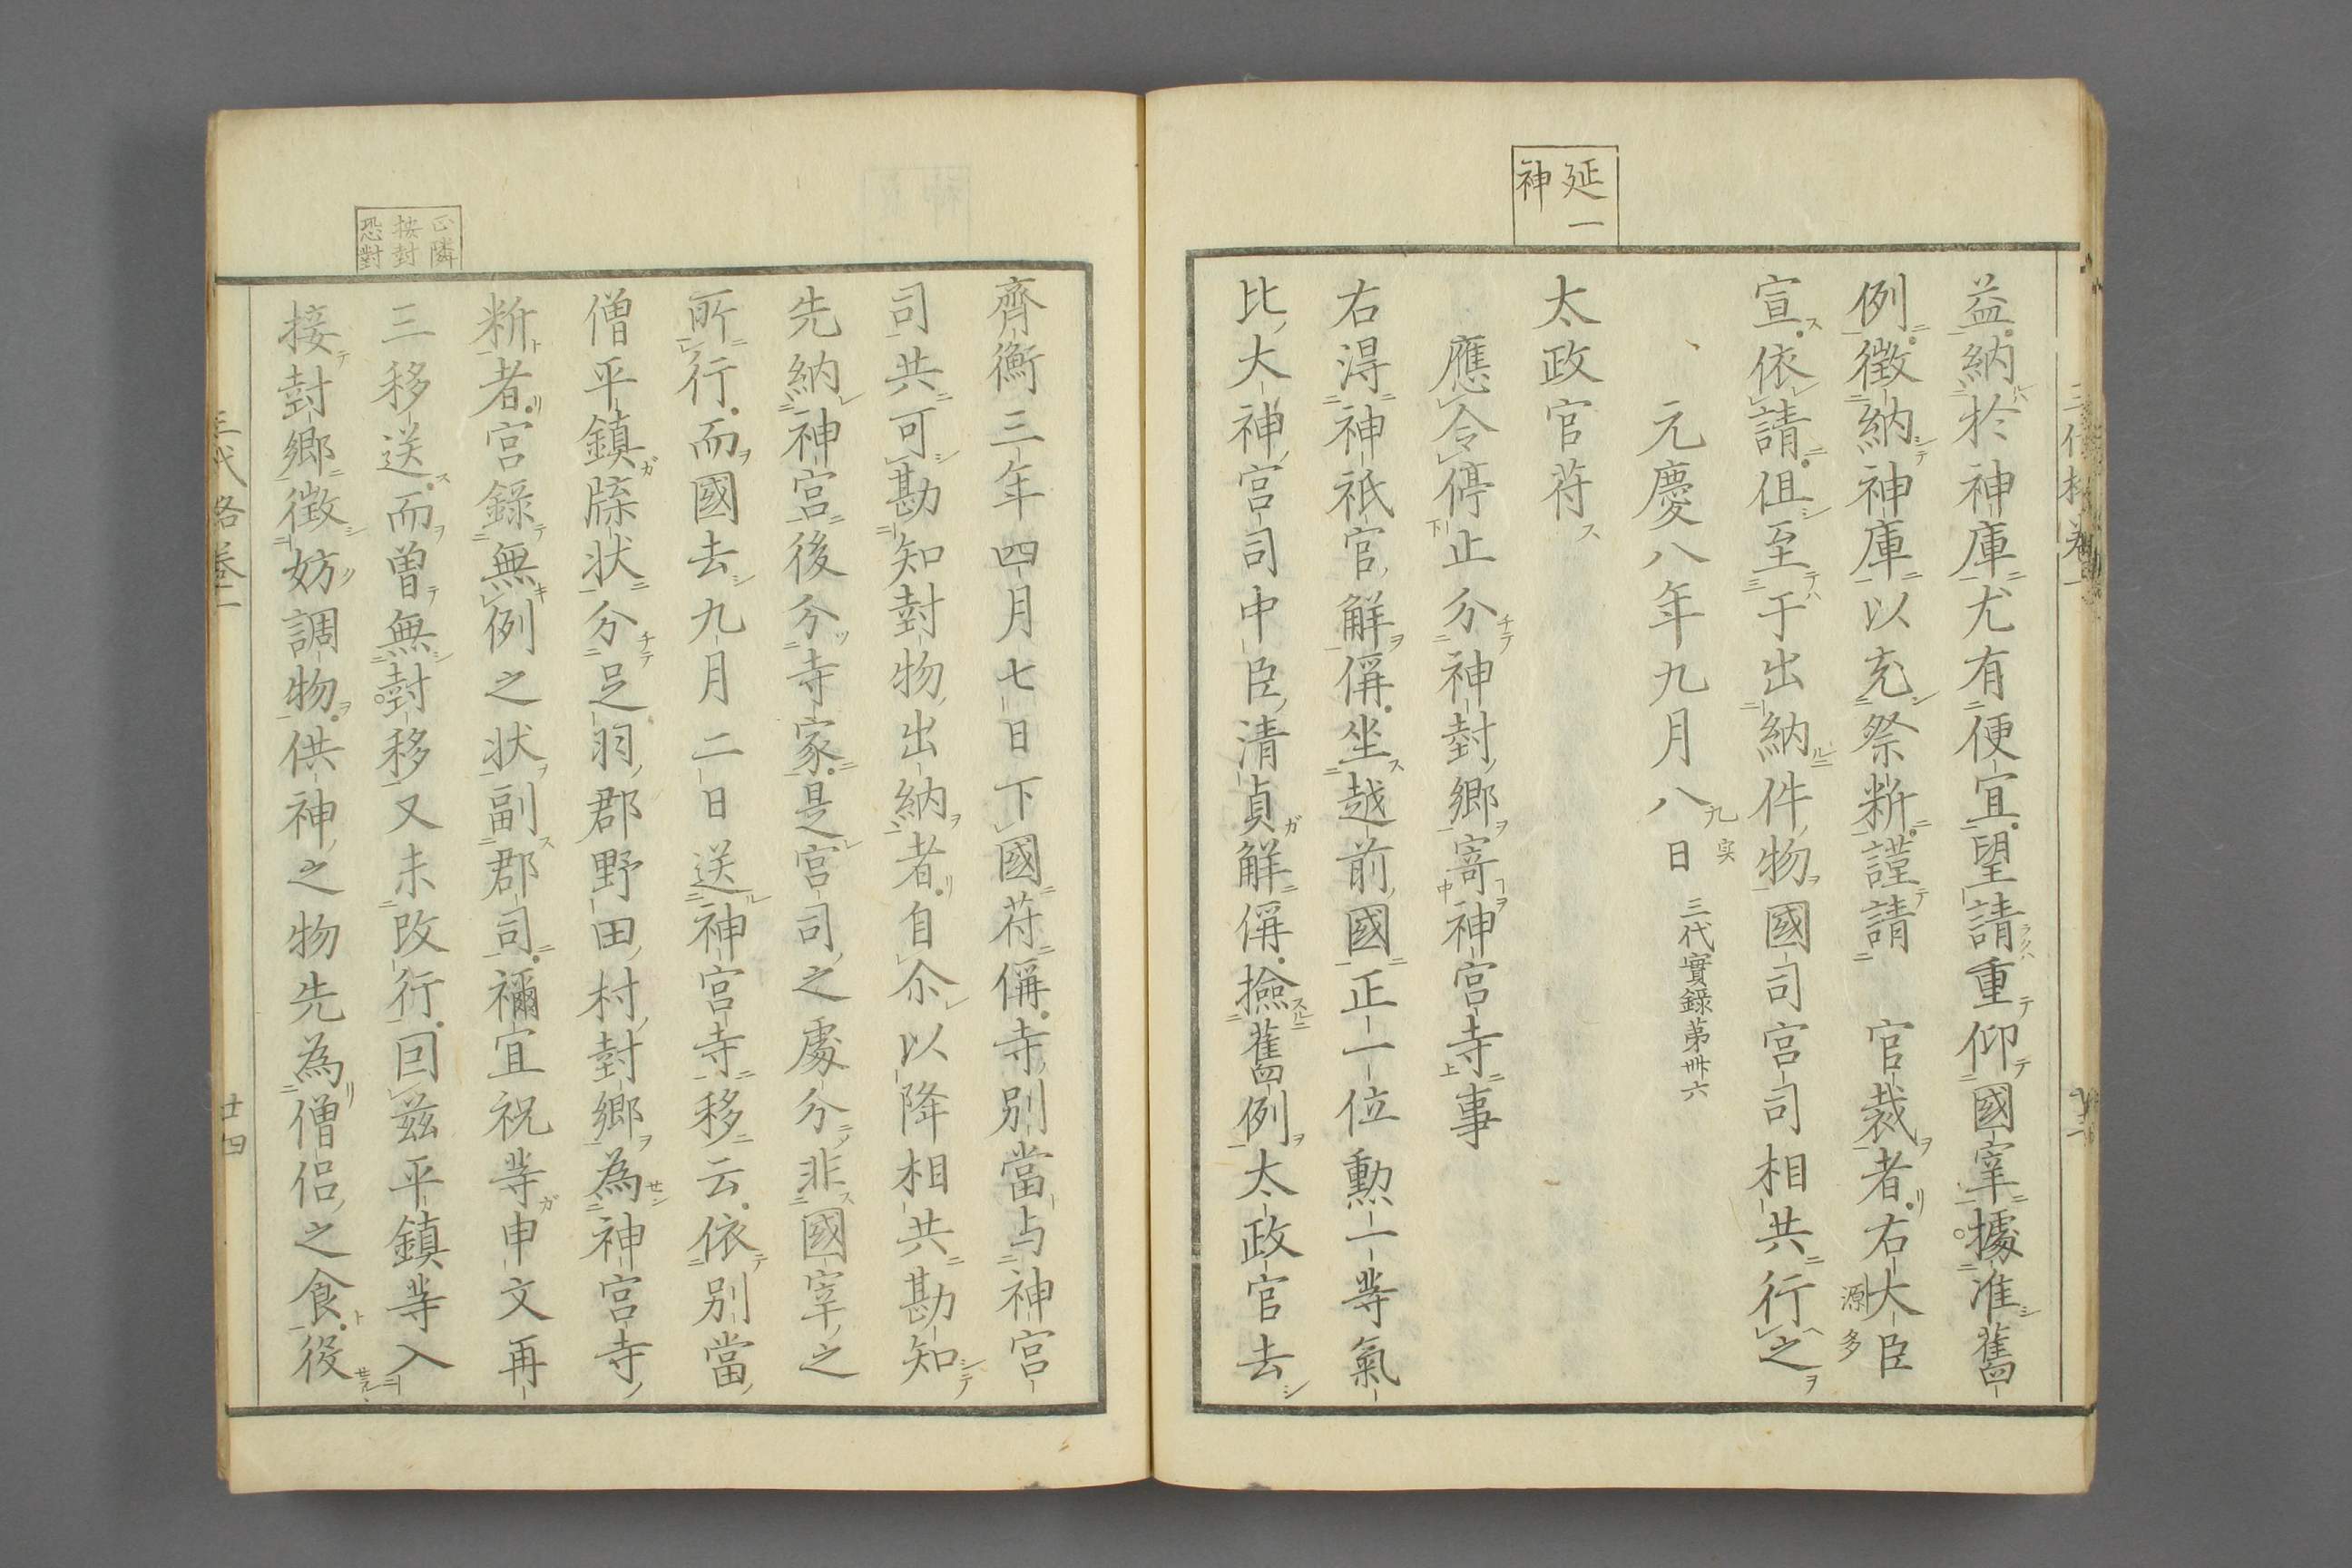 延一
神
益納於神庫尤有便宜望請重仰國宰據准舊
例徴納神庫以充祭斷謹請　官裁者右大臣
源多
宣依請但至于出納件物國司宮司相共行之
元慶八年九月八日
九実
三代實錄苐卅六
太政官苻
應令停止分神封鄕寄神宮寺事
右淂神祇官觧偁坐越前國正一位勲一等氣
比大神宮司中臣清貞觧偁撿舊例太政官去
正隣
按封
恐對
齊衡三年四月七日下國苻偁寺別當与神宮
司共可勘知封物出納者自尒以降相共勘知
先納神宮後分寺家是宮司之處分非國宰之
所行而國去九月二日送神宮寺移云依別當
僧平鎮牒状分足羽郡野田村封鄕為神宮寺
斷者宮錄無例之状副郡司禰宜祝等申文再
三移送而曽無封移又未改行囙茲平鎮等入
接封鄕徴妨調物供神之物先為僧侣之食役
三代格卷一
廿四